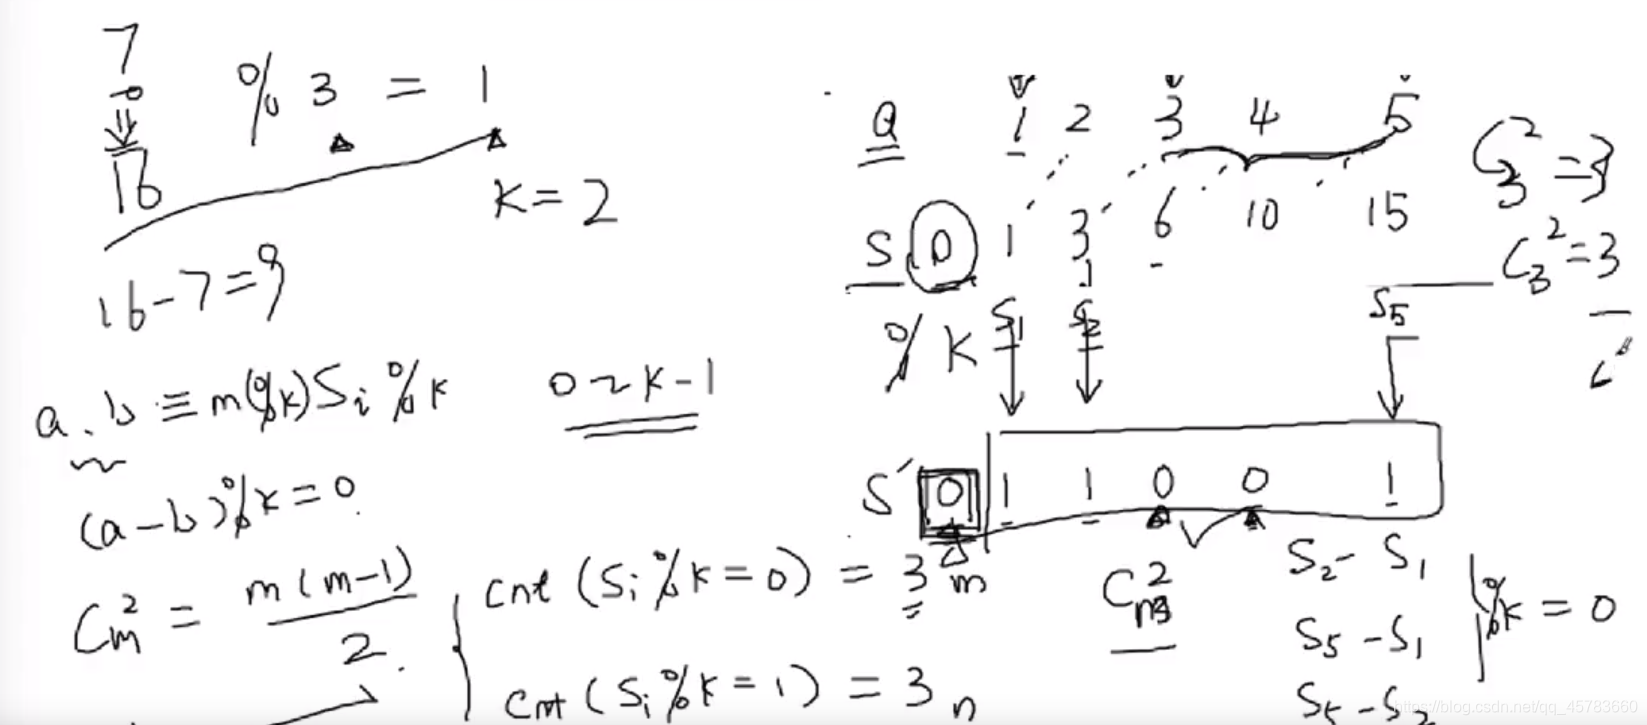 7
16 % 3 = 1
K = 2
16 - 7 = 9
a . b ≡ m(%k) Si % k 0 ~ k - 1
(a - b) % k = 0
C²m = m(m-1) / 2
cnt (Si % k = 0) = 3 m
cnt (Si % k = 1) = 3 n
Q 1 2 3 4 5
S 0 1 3 6 10 15
C²3 = 3
C²3 = 3
% K S1 S2 S5
S′ 0 1 1 0 0 1
S2 - S1
S5 - S1 % k = 0
S5 - S2
https://blog.csdn.net/qq_45783660